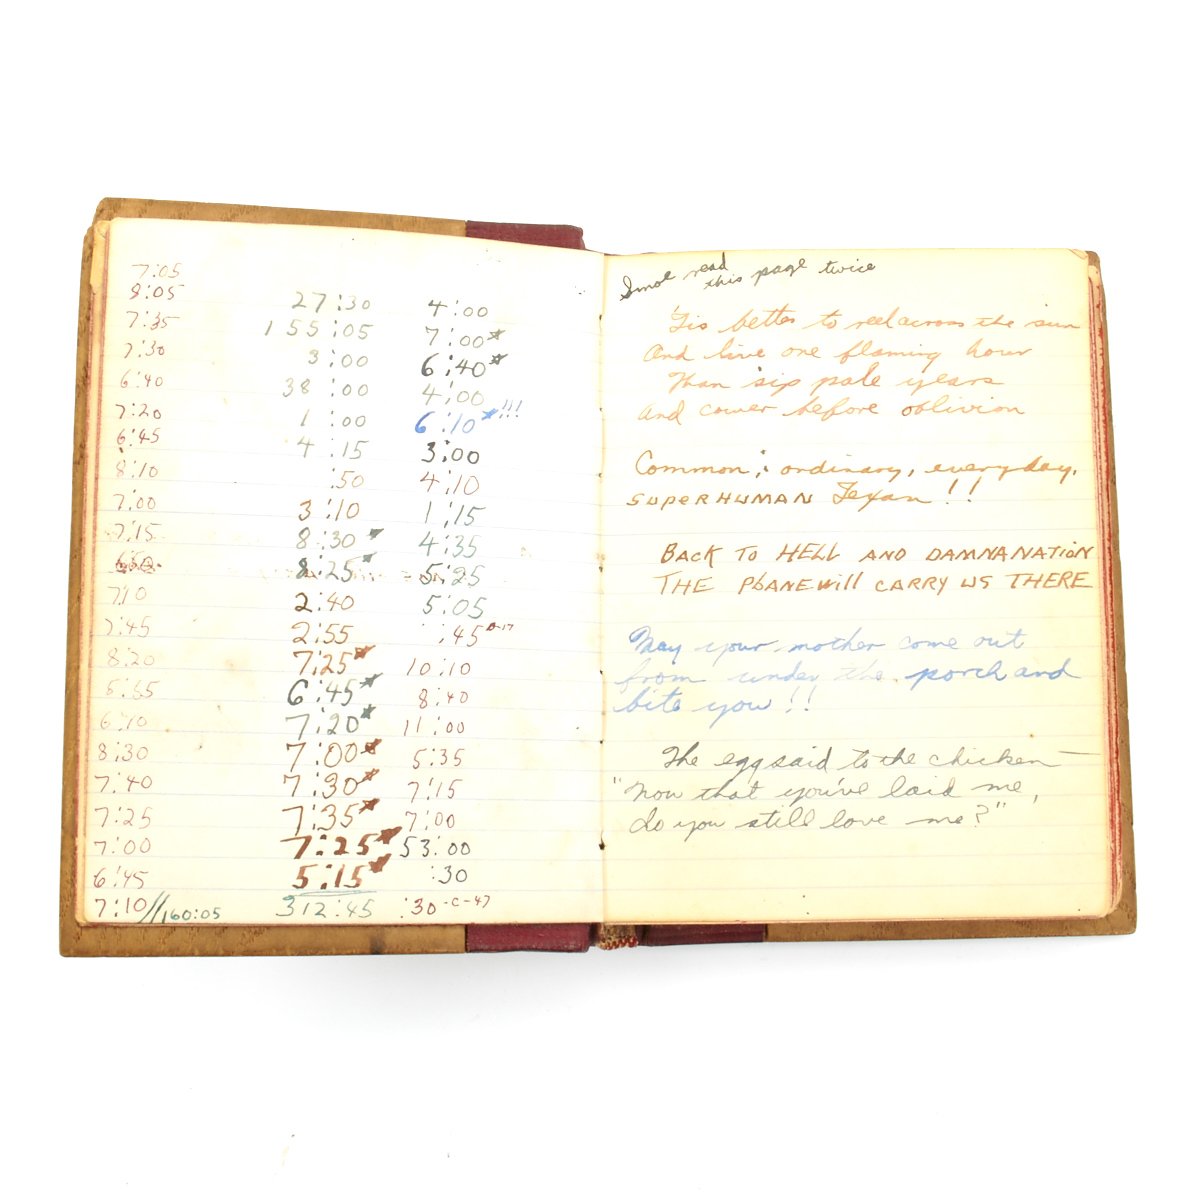 7:05
8:05
7:35
7:30
6:40
7:20
6:45
8:10
7:00
7:15
7:10
7:45
8:20
6:10
8:30
7:40
7:25
7:00
6:45
7:10 // 160:05
27:30
155:05
3:00
38:00
1:00
4:15
:50
3:10
8:30*
8:25*
2:40
2:55
7:25*
6:45*
7:20*
7:00*
7:30*
7:35*
7:25*
5:15*
312:45
4:00
7:00*
6:40*
4:00
6:10*!!!
3:00
4:10
1:15
4:35
5:25
5:05
:45 B-17
10:10
8:40
11:00
5:35
7:15
7:00
53:00
:30
:30 -C-47
read this page twice
'Tis better to reel across the sun
And live one flaming hour
Than six pale years
And cower before oblivion
Common, ordinary, everyday,
SUPERHUMAN Texan!!
BACK TO HELL AND DAMNANATION
THE PLANE will CARRY US THERE
May your mother come out
from under the porch and
bite you!!
The egg said to the chicken—
"Now that you've laid me,
do you still love me?"